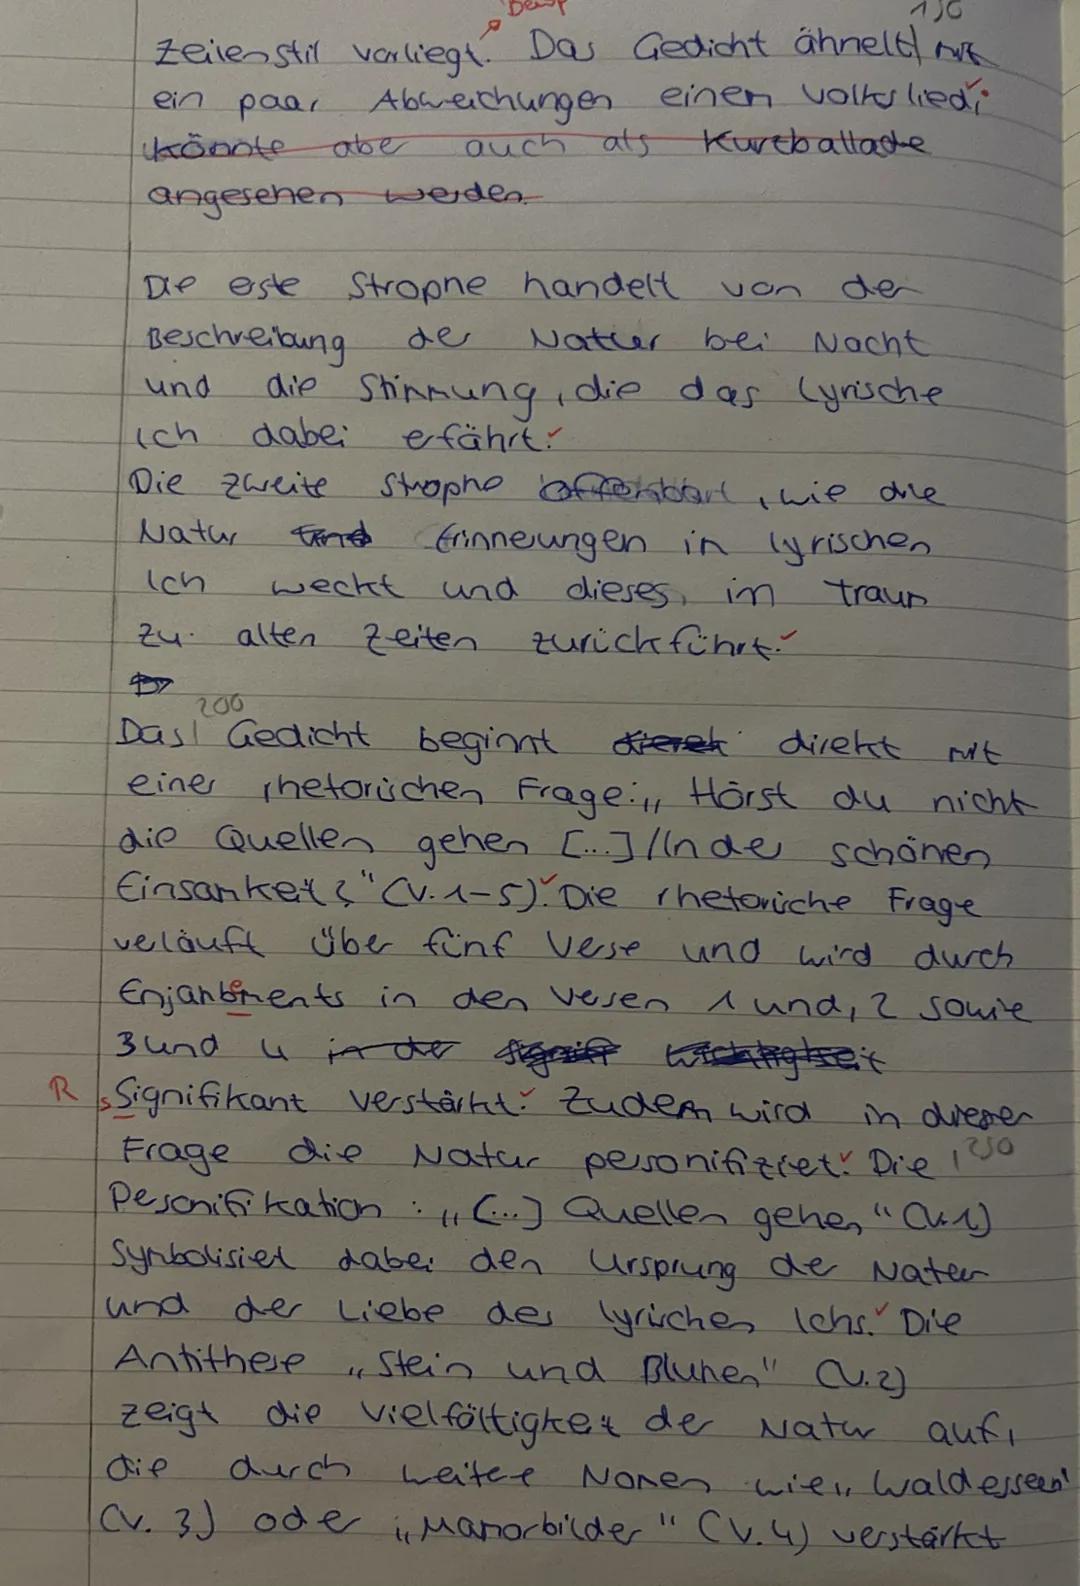 Beisp
150
Zeilenstil vorliegt. Das Gedicht ähnelt mit
ein paar Abweichungen einem Volkslied,
könnte aber auch als Kurzballade
angesehen werden.
Die erste Strophe handelt von der
Beschreibung der Natur bei Nacht
und die Stimmung, die das lyrische
Ich dabei erfährt.
Die zweite Strophe offenbart, wie die
Natur und Erinnerungen im lyrischen
Ich weckt und dieses, im Traum
zu alten Zeiten zurückführt.
200
Das Gedicht beginnt direkt mit
einer rhetorischen Frage: „Hörst du nicht
die Quellen gehen [...]/In der schönen
Einsamkeit?" (V. 1-5). Die rhetorische Frage
verläuft über fünf Verse und wird durch
Enjambments in den Versen 1 und, 2 sowie
3 und 4 in der
R s Signifikant verstärkt. Zudem wird in dieser
Frage die Natur personifiziert. Die 250
Personifikation: „[...] Quellen gehen" (V. 1)
Symbolisiert dabei den Ursprung der Natur
und der Liebe des lyrischen Ichs. Die
Antithese „Stein und Blumen" (V. 2)
zeigt die Vielfältigkeit der Natur auf,
die durch weitere Nomen wie „Waldesseen"
(V. 3) oder „Mamorbilder" (V. 4) verstärkt